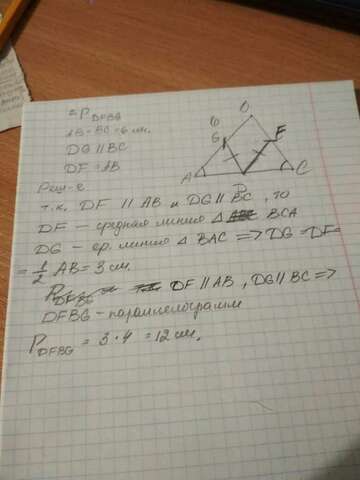 = P DFBG
AB = BC = 6 см.
DG || BC
DF = AB
Реш-е
т.к. DF || AB и DG || BC, то
DF - средная линия △ BCA
DG - ср. линия △ BAC => DG = DF =
= 1/2 AB = 3 см.
P DFBG DF || AB, DG || BC =>
DFBG - параллелограмм
P DFBG = 3 · 4 = 12 см.
6
G
F
A
D
C